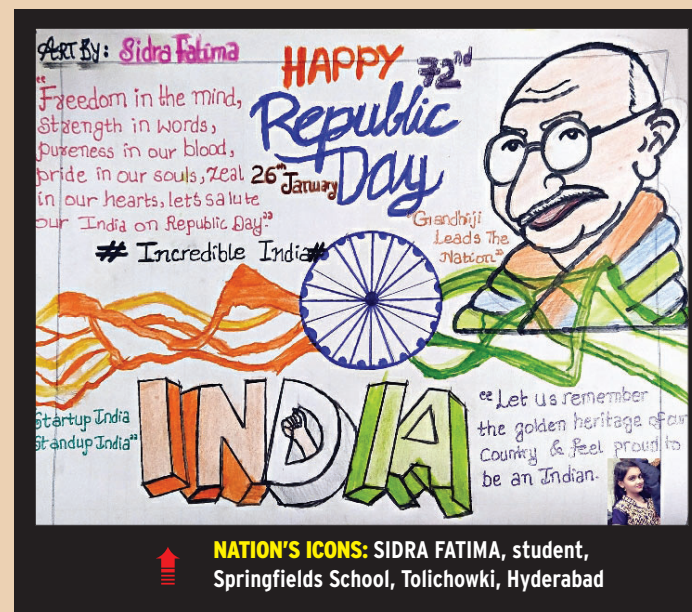 ART By: Sidra Fatima
HAPPY 72nd
Republic
Day
26th January
"Freedom in the mind,
Strength in words,
pureness in our blood,
pride in our souls, zeal
in our hearts, let's salute
our India on Republic Day."
# Incredible India#
"Gandhiji
Leads The
Nation"
INDIA
Startup India
Standup India"
"Let us remember
the golden heritage of our
Country & feel proud to
be an Indian.
NATION'S ICONS: SIDRA FATIMA, student,
Springfields School, Tolichowki, Hyderabad